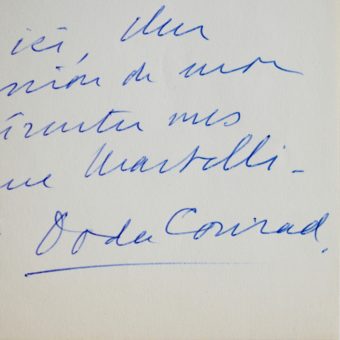 ici, Mon
nion de mon
senter mes
que Martelli -
Doda Conrad.